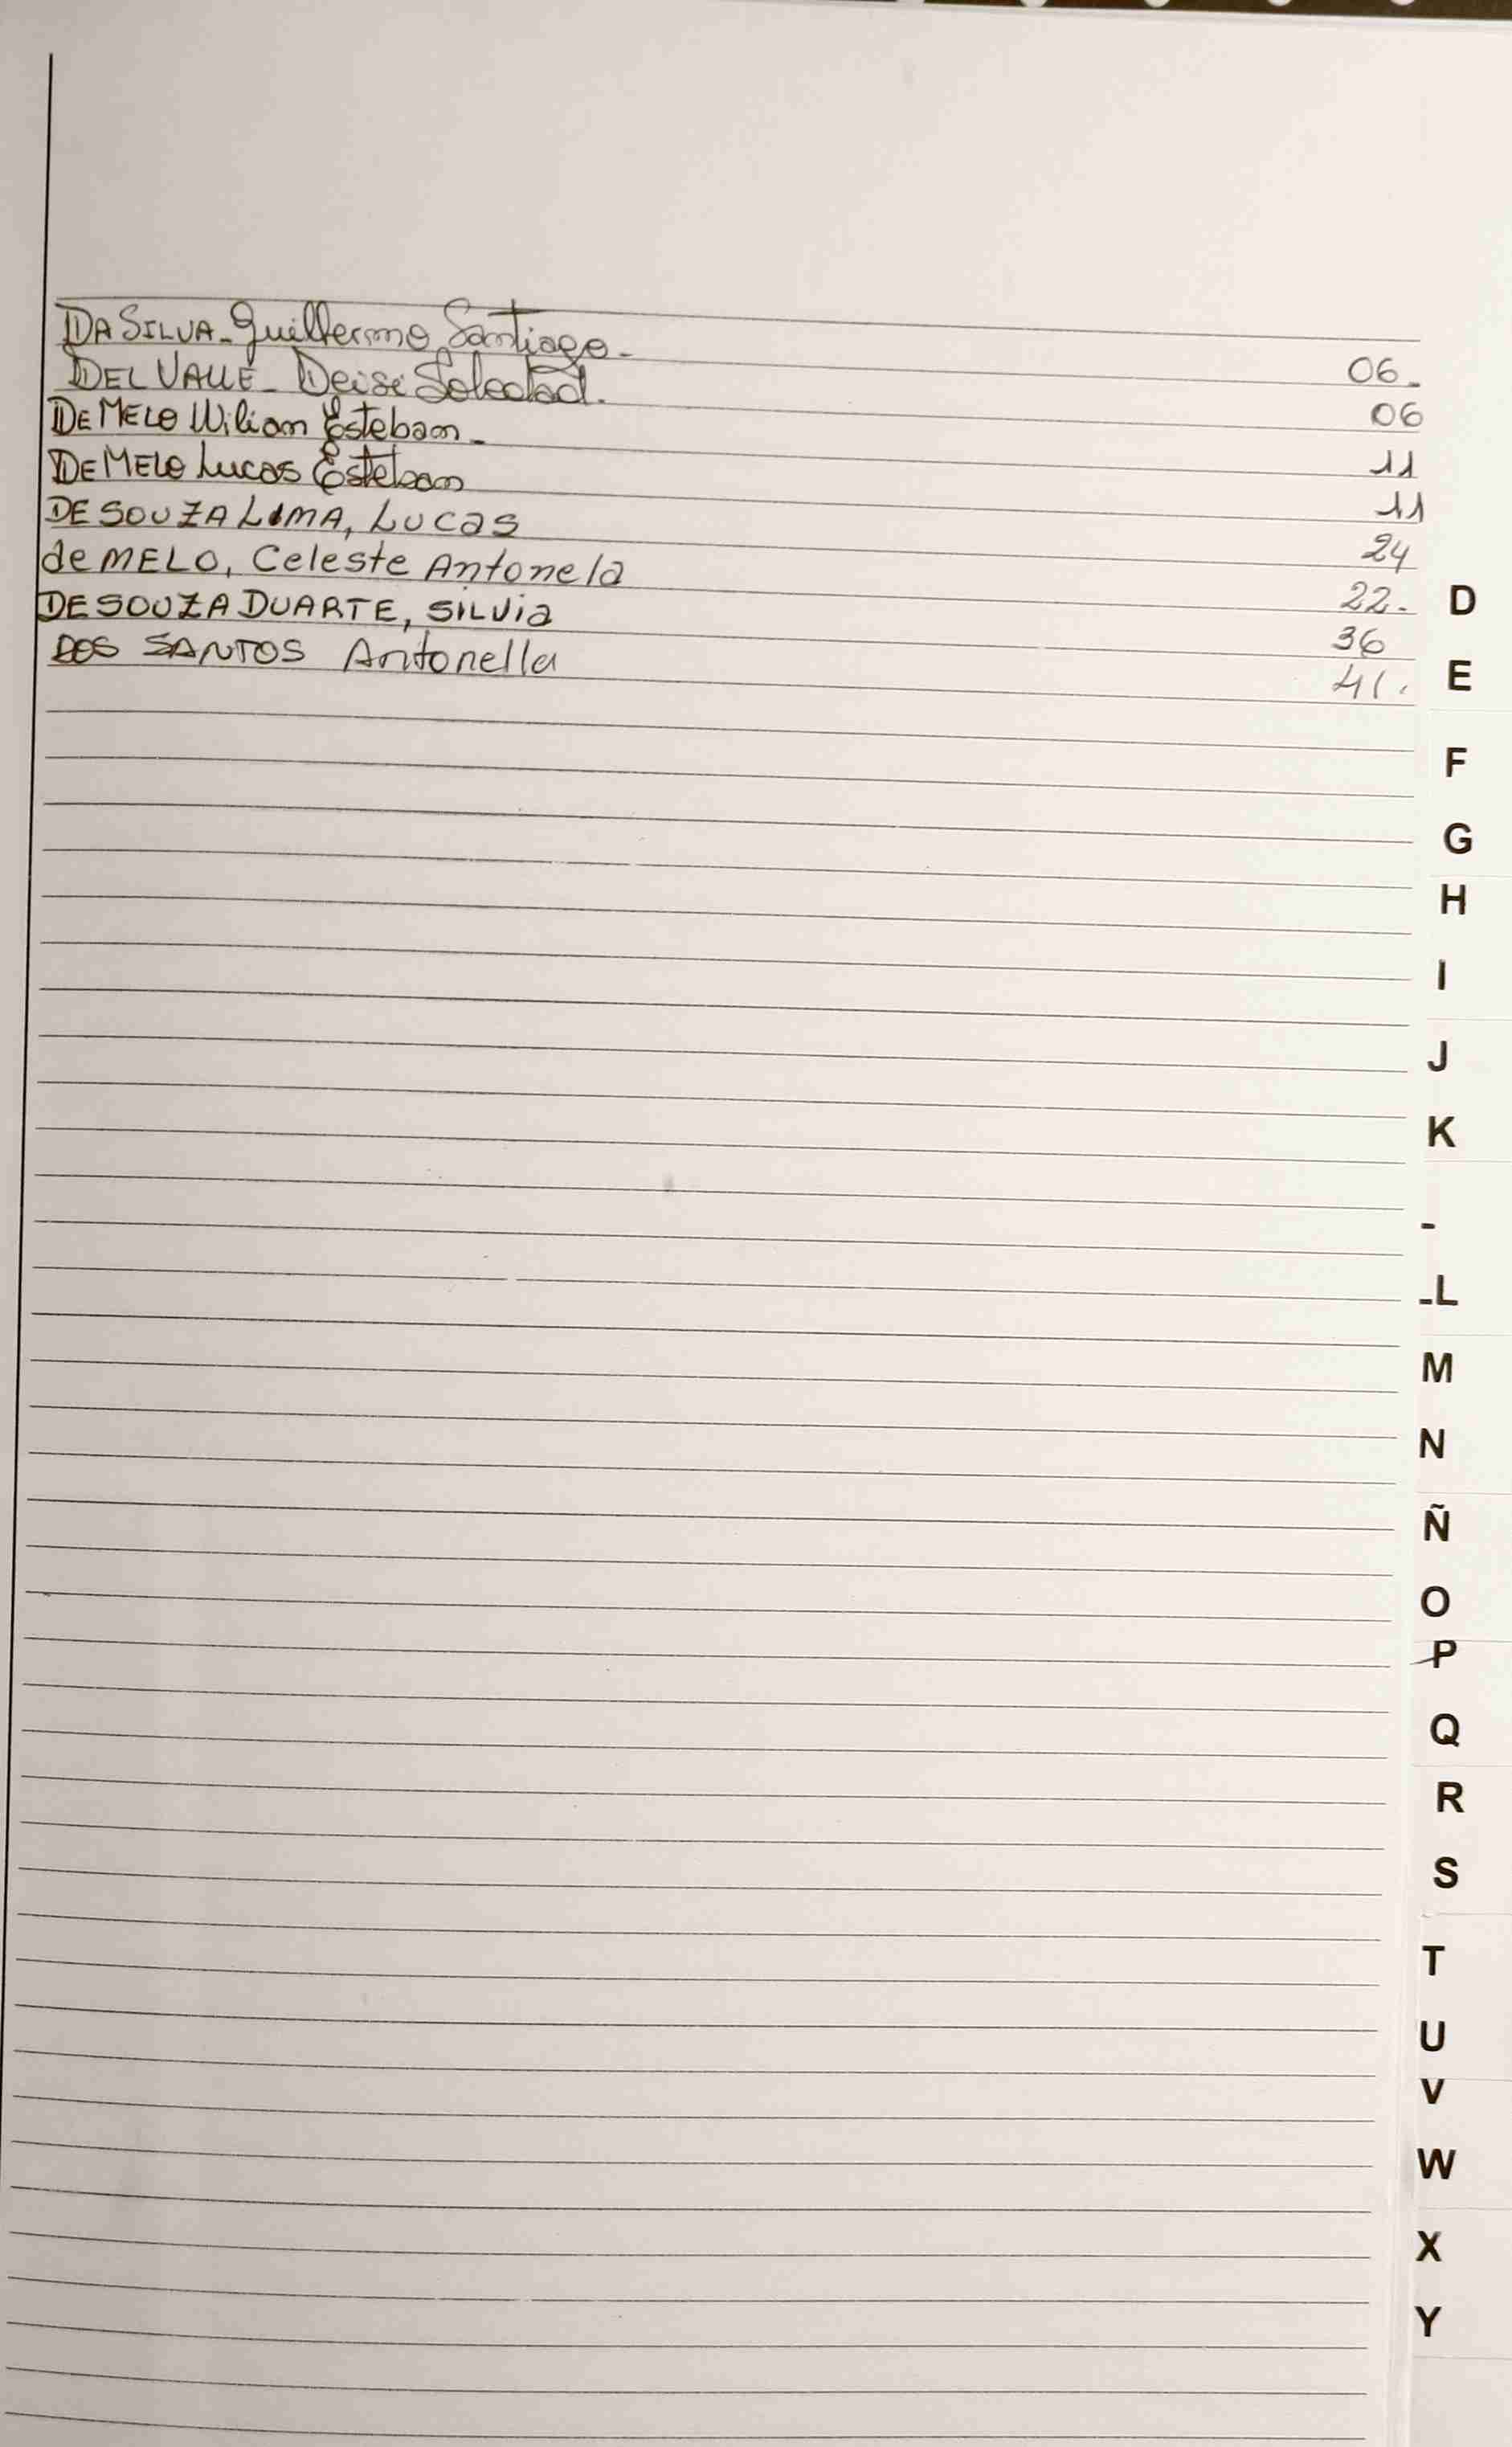 DA SILVA - Guillermo Santiago - 06 -
DEL VALLE - Deisi Soledad. 06
DE MELO Wiliam Esteban - 11
DE MELO Lucas Esteban 11
DE SOUZA LIMA, Lucas 24
de MELO, Celeste Antonela 22.
DE SOUZA DUARTE, Silvia 36
DOS SANTOS Antonella 41.
D
E
F
G
H
I
J
K
-
-L
M
N
Ñ
O
P
Q
R
S
T
U
V
W
X
Y